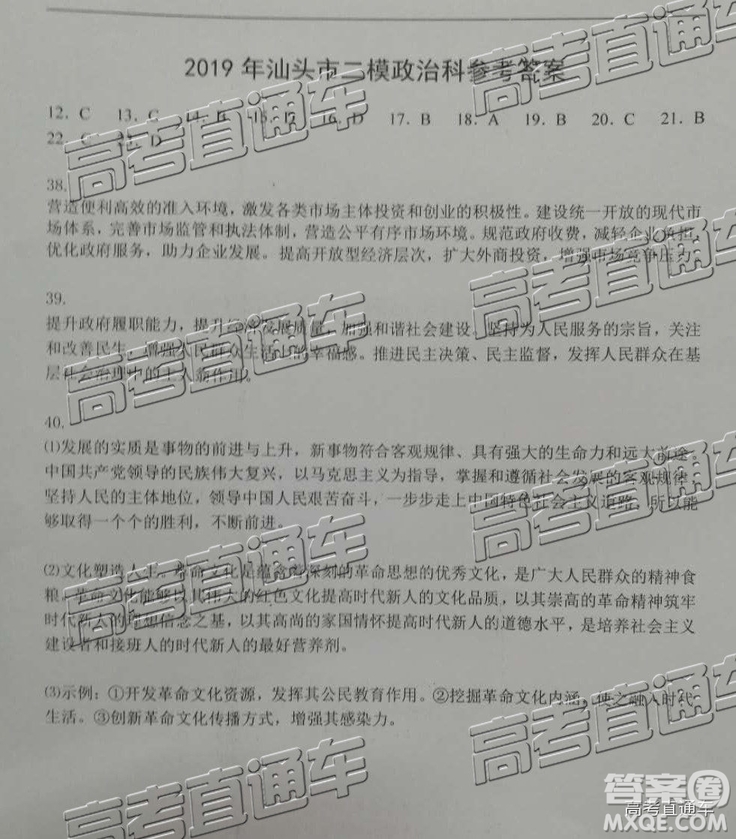 2019 年汕头市二模政治科参考答案
12. C 13. C 14. 15. 16. D 17. B 18. A 19. B 20. C 21. B
22. C D
38.
营造便利高效的准入环境，激发各类市场主体投资和创业的积极性。建设统一开放的现代市
场体系，完善市场监管和执法体制，营造公平有序市场环境。规范政府收费，减轻企业负担，
优化政府服务，助力企业发展。提高开放型经济层次，扩大外商投资，增强市场竞争压力。
39.
提升政府履职能力，提升经济发展质量，加强和谐社会建设。坚持为人民服务的宗旨，关注
和改善民生，增强人民群众生活上的幸福感。推进民主决策、民主监督，发挥人民群众在基
层社会治理中的主人翁作用。
40.
⑴发展的实质是事物的前进与上升，新事物符合客观规律、具有强大的生命力和远大前途。
中国共产党领导的民族伟大复兴，以马克思主义为指导，掌握和遵循社会发展的客观规律，
坚持人民的主体地位，领导中国人民艰苦奋斗，一步步走上中国特色社会主义道路，所以能
够取得一个个的胜利，不断前进。
⑵文化塑造人生。革命文化是蕴含着深刻的革命思想的优秀文化，是广大人民群众的精神食
粮。革命文化能够以其伟大的红色文化提高时代新人的文化品质，以其崇高的革命精神筑牢
时代新人的理想信念之基，以其高尚的家国情怀提高时代新人的道德水平，是培养社会主义
建设者和接班人的时代新人的最好营养剂。
⑶示例：①开发革命文化资源，发挥其公民教育作用。②挖掘革命文化内涵，使之融入时代
生活。③创新革命文化传播方式，增强其感染力。
高考直通车
高考直通车
高考直通车
高考直通车
高考直通车
高考直通车
高考直通车
高考直通车
高考直通车
答案圈
高考直通车
MXQE.COM